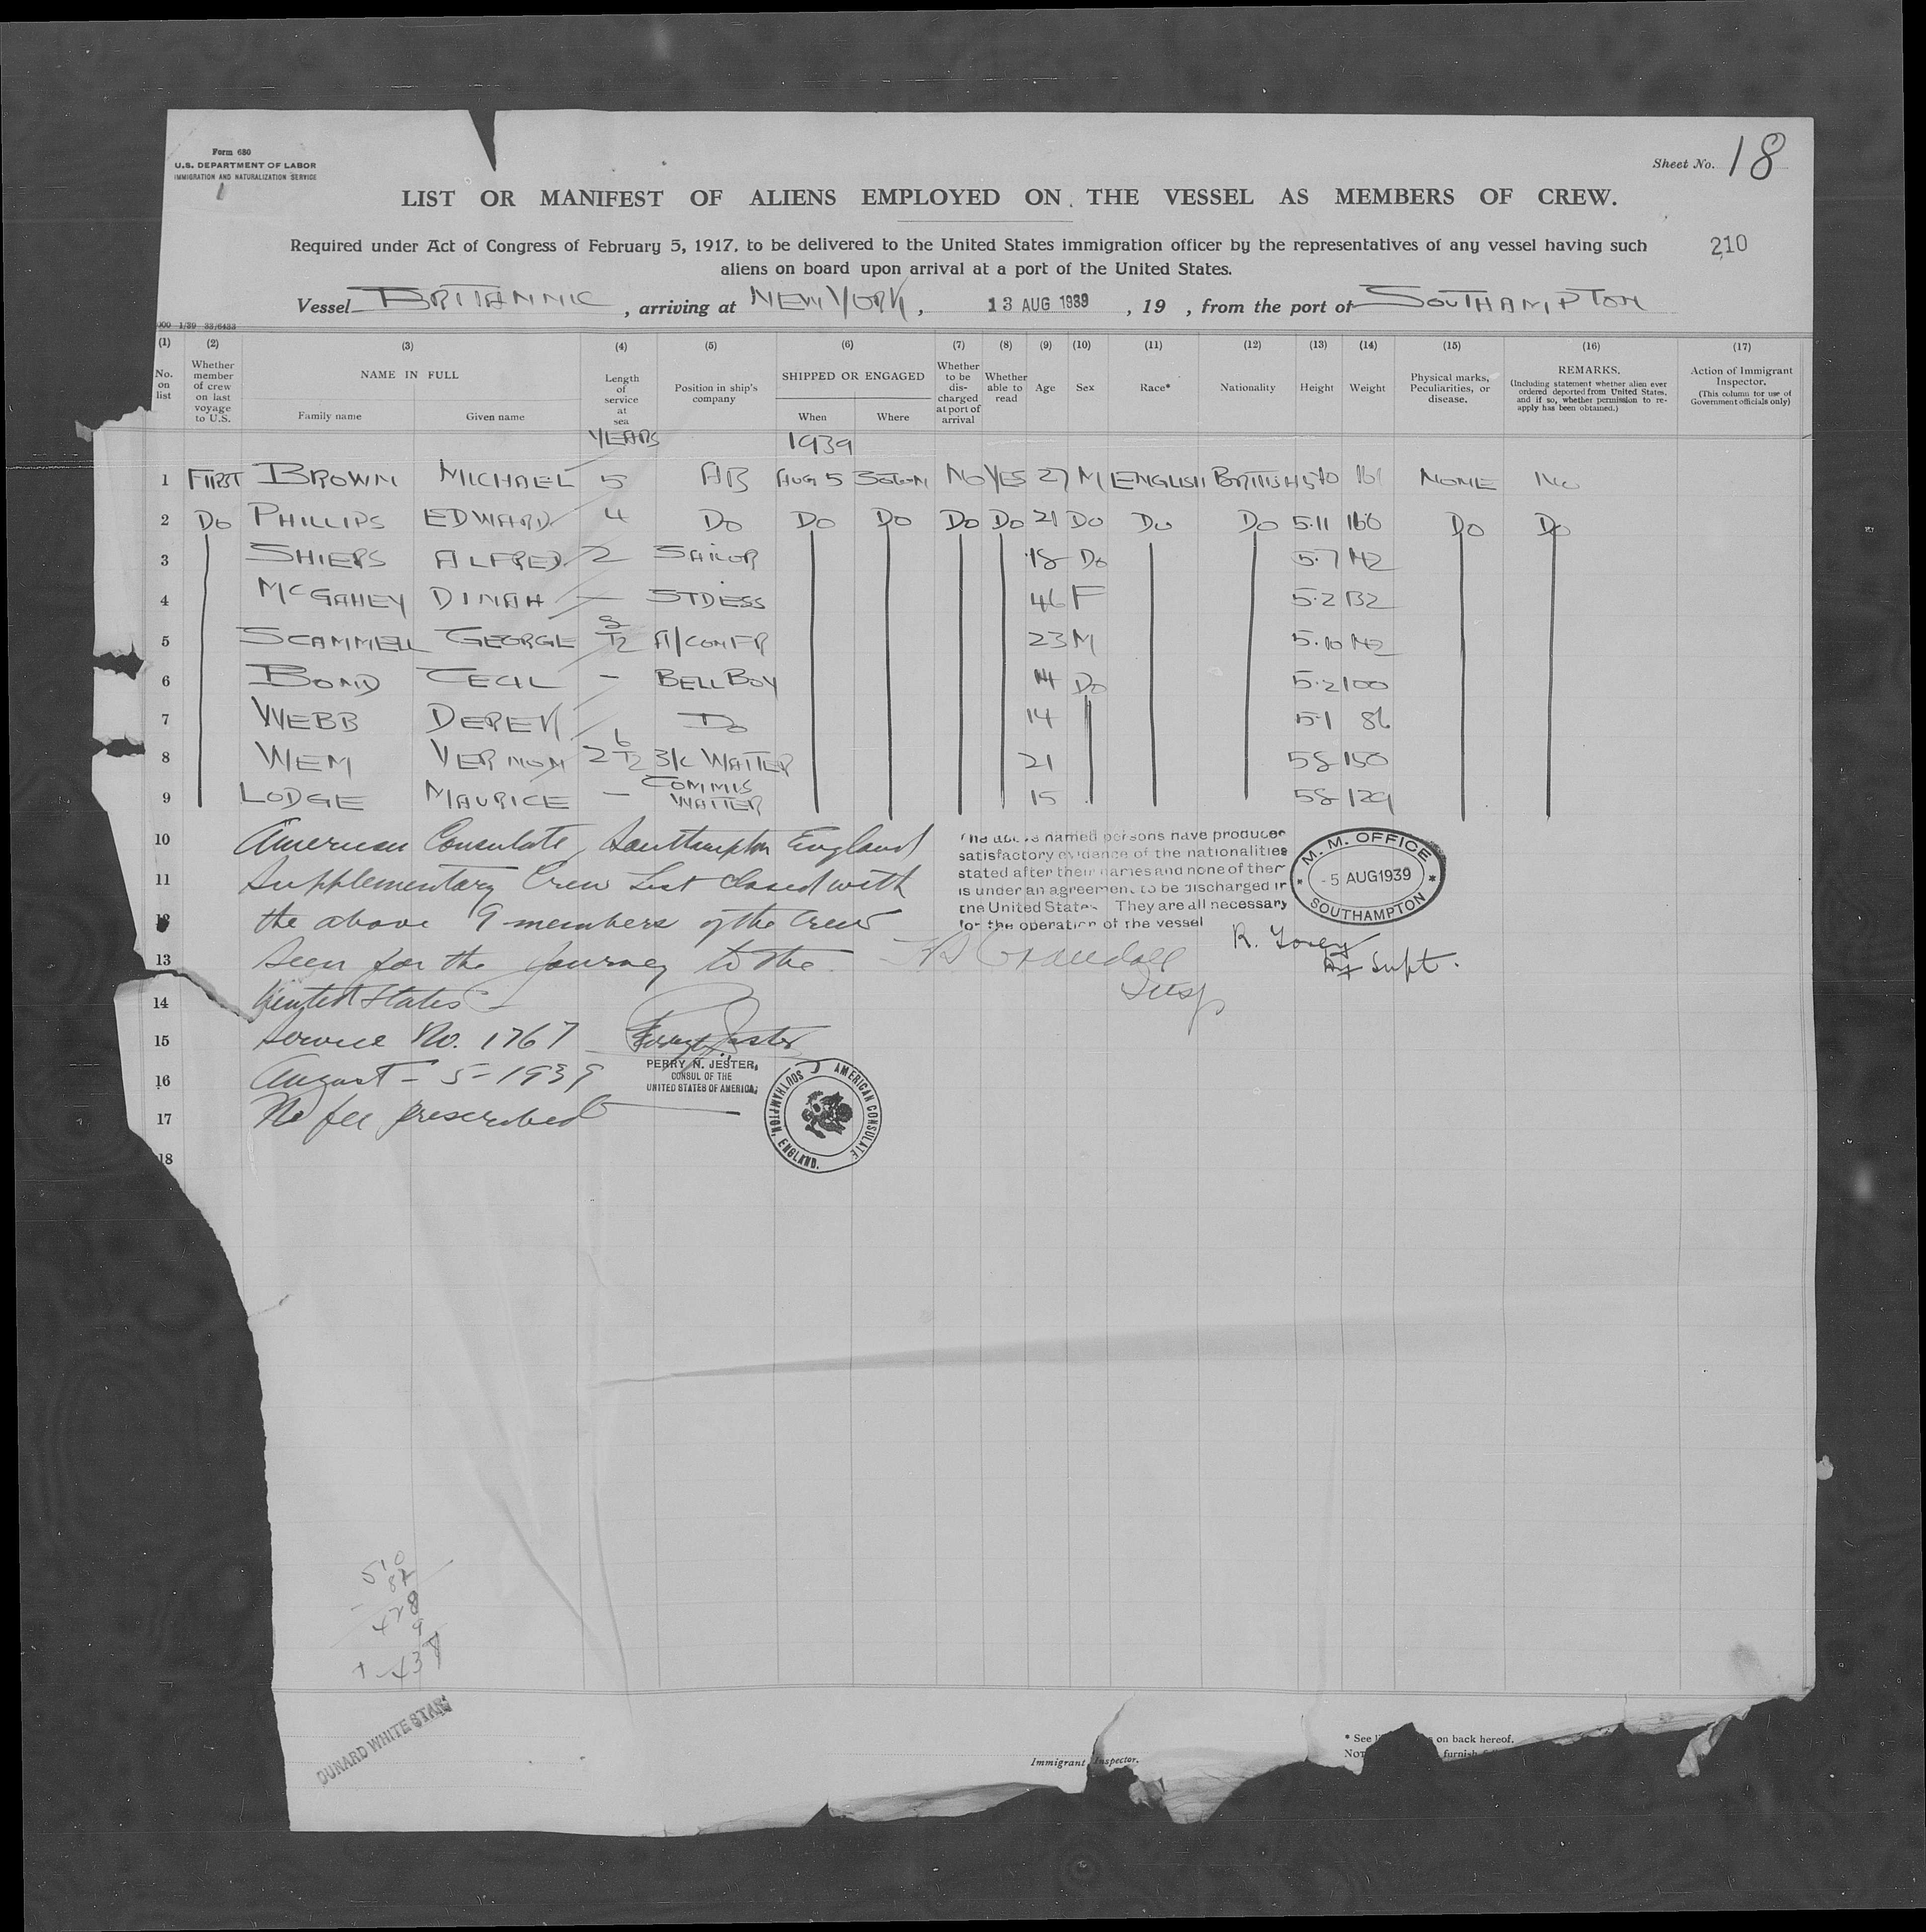 Form 680
U.S. DEPARTMENT OF LABOR
IMMIGRATION AND NATURALIZATION SERVICE
1
Sheet No. 18
LIST OR MANIFEST OF ALIENS EMPLOYED ON THE VESSEL AS MEMBERS OF CREW.
Required under Act of Congress of February 5, 1917, to be delivered to the United States immigration officer by the representatives of any vessel having such
aliens on board upon arrival at a port of the United States.
210
Vessel BRITANNIC, arriving at NEW YORK, 13 AUG 1939, 19 , from the port of SOUTHAMPTON
000 1/39 33/6433
(1) (2) (3) (4) (5) (6) (7) (8) (9) (10) (11) (12) (13) (14) (15) (16) (17)
No. on list
Whether member of crew on last voyage to U.S.
NAME IN FULL
Family name Given name
Length of service at sea
Position in ship's company
SHIPPED OR ENGAGED
When Where
Whether to be discharged at port of arrival
Whether able to read
Age
Sex
Race*
Nationality
Height
Weight
Physical marks, Peculiarities, or disease.
REMARKS.
(Including statement whether alien ever ordered deported from United States, and if so, whether permission to re-apply has been obtained.)
Action of Immigrant Inspector.
(This column for use of Government officials only)
YEARS 1939
1 FIRST BROWN MICHAEL 5 AB AUG 5 SOTON NO YES 27 M ENGLISH BRITISH 5.10 161 NONE NO
2 DO PHILLIPS EDWARD 4 DO DO DO DO DO 21 DO DO DO 5.11 166 DO DO
3 SHIERS ALFRED 2 SAILOR 18 DO 5.7 142
4 McGAHEY DINAH — STDESS 46 F 5.2 132
5 SCAMMELL GEORGE 3/12 A/CONFR 23 M 5.10 142
6 BOND CECIL - BELL BOY 14 DO 5.2 100
7 WEBB DEREK DO 14 5.1 86
8 WEM VERNON 2 6/12 3/C WAITER 21 5.8 150
9 LODGE MAURICE - COMMIS WAITER 15 5.8 129
10 American Consulate, Southampton England
11 Supplementary Crew List closed with
12 the above 9 members of the crew
13 Seen for the journey to the
14 United States
15 Service No. 1767
16 August - 5 - 1939
17 No fee prescribed
18
The above named persons have produced
satisfactory evidence of the nationalities
stated after their names and none of them
is under an agreement to be discharged in
the United States. They are all necessary
for the operation of the vessel
M. M. OFFICE
-5 AUG 1939
SOUTHAMPTON
Crandall
Insp
Supt.
PERRY N. JESTER,
CONSUL OF THE
UNITED STATES OF AMERICA;
AMERICAN CONSULATE
SOUTHAMPTON, ENGLAND.
510
82
428
9
437
CUNARD WHITE STAR
Immigrant Inspector.
* See on back hereof.
furnish